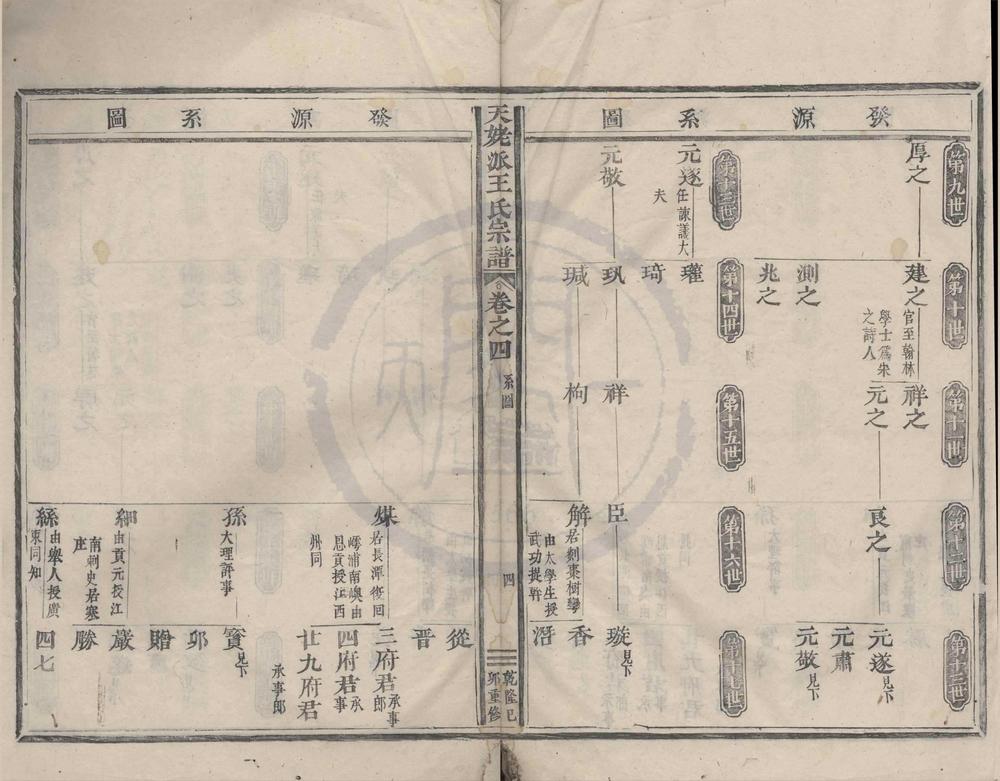 發源系圖
第九世
厚之
第十世
建之
官至翰林
學士爲宋
之詩人
測之
兆之
第十一世
祥之
元之
第十二世
良之
第十三世
元遂見下
元肅
元敬見下
第十三世
元遂
任諫議大
夫
元敬
第十四世
瓘
琦
玐
瑊
第十五世
祥
枸
第十六世
臣
解
居剡棗樹灣
由太學生授
武功提幹
第十七世
璇見下
香
湝
天姥派王氏宗譜
卷之四
系圖
四
乾隆己
卯重修
發源系圖
煤
居長潭復回
嵊浦南嶴由
恩貢授江西
州同
孫
大理評事
細
由貢元授江
南刺史居寨
庄
緜
由舉人授廣
東同知
從
晋
三府君承事郎
四府君承事
廿九府君
承事郎
寳見下
夘
贈
嚴
勝
四七